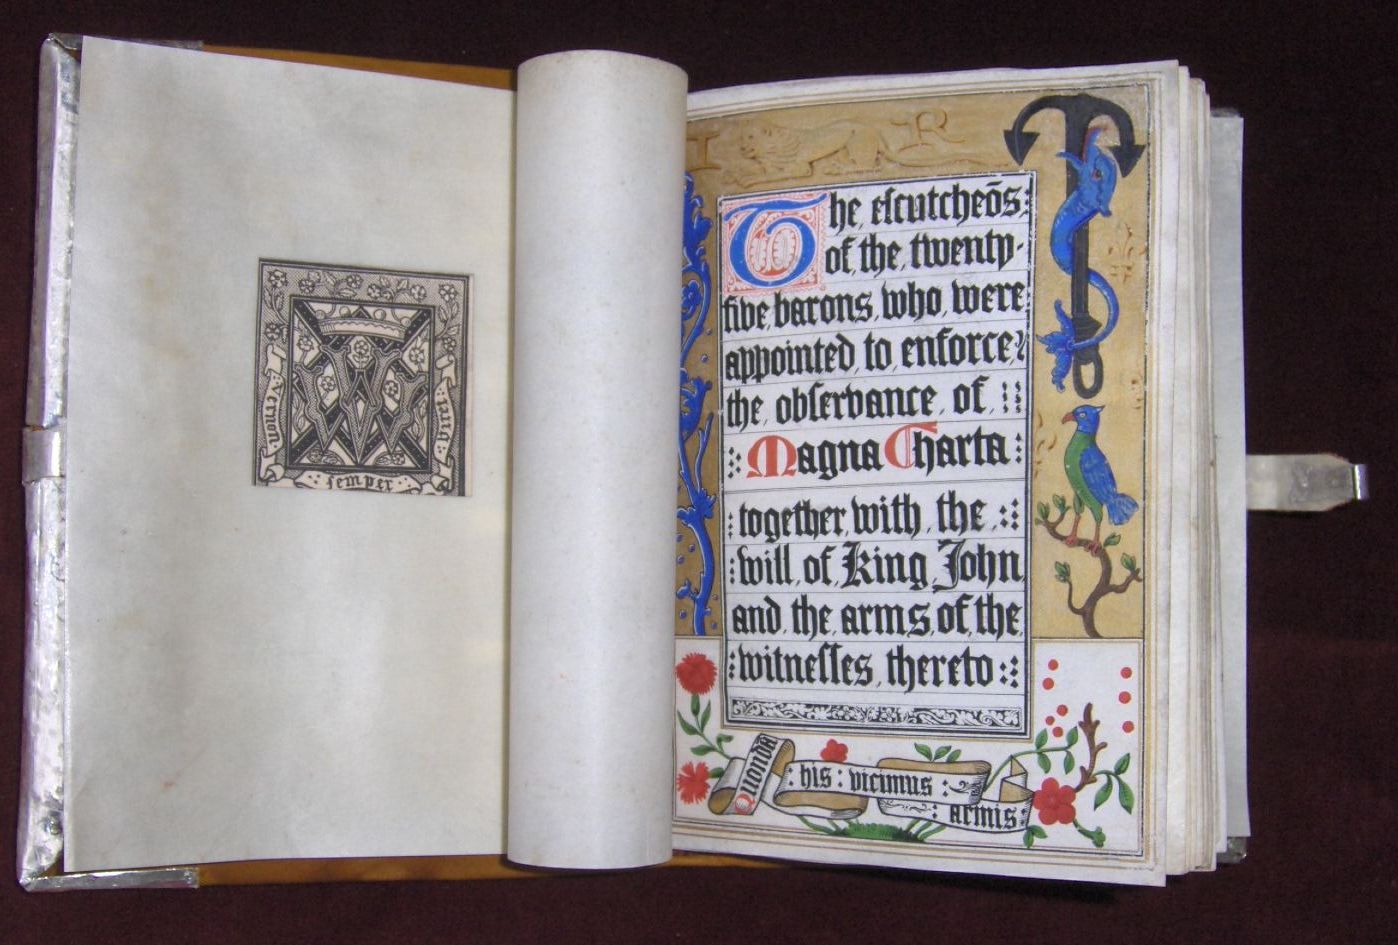 Vernon
semper
viret
W
I R
The eſcutcheōs
of the twenty-
five barons who were
appointed to enforce
the obſervance of
Magna Charta
together with the
will of King John
and the arms of the
witneſſes thereto
Quondā his vicimus armis